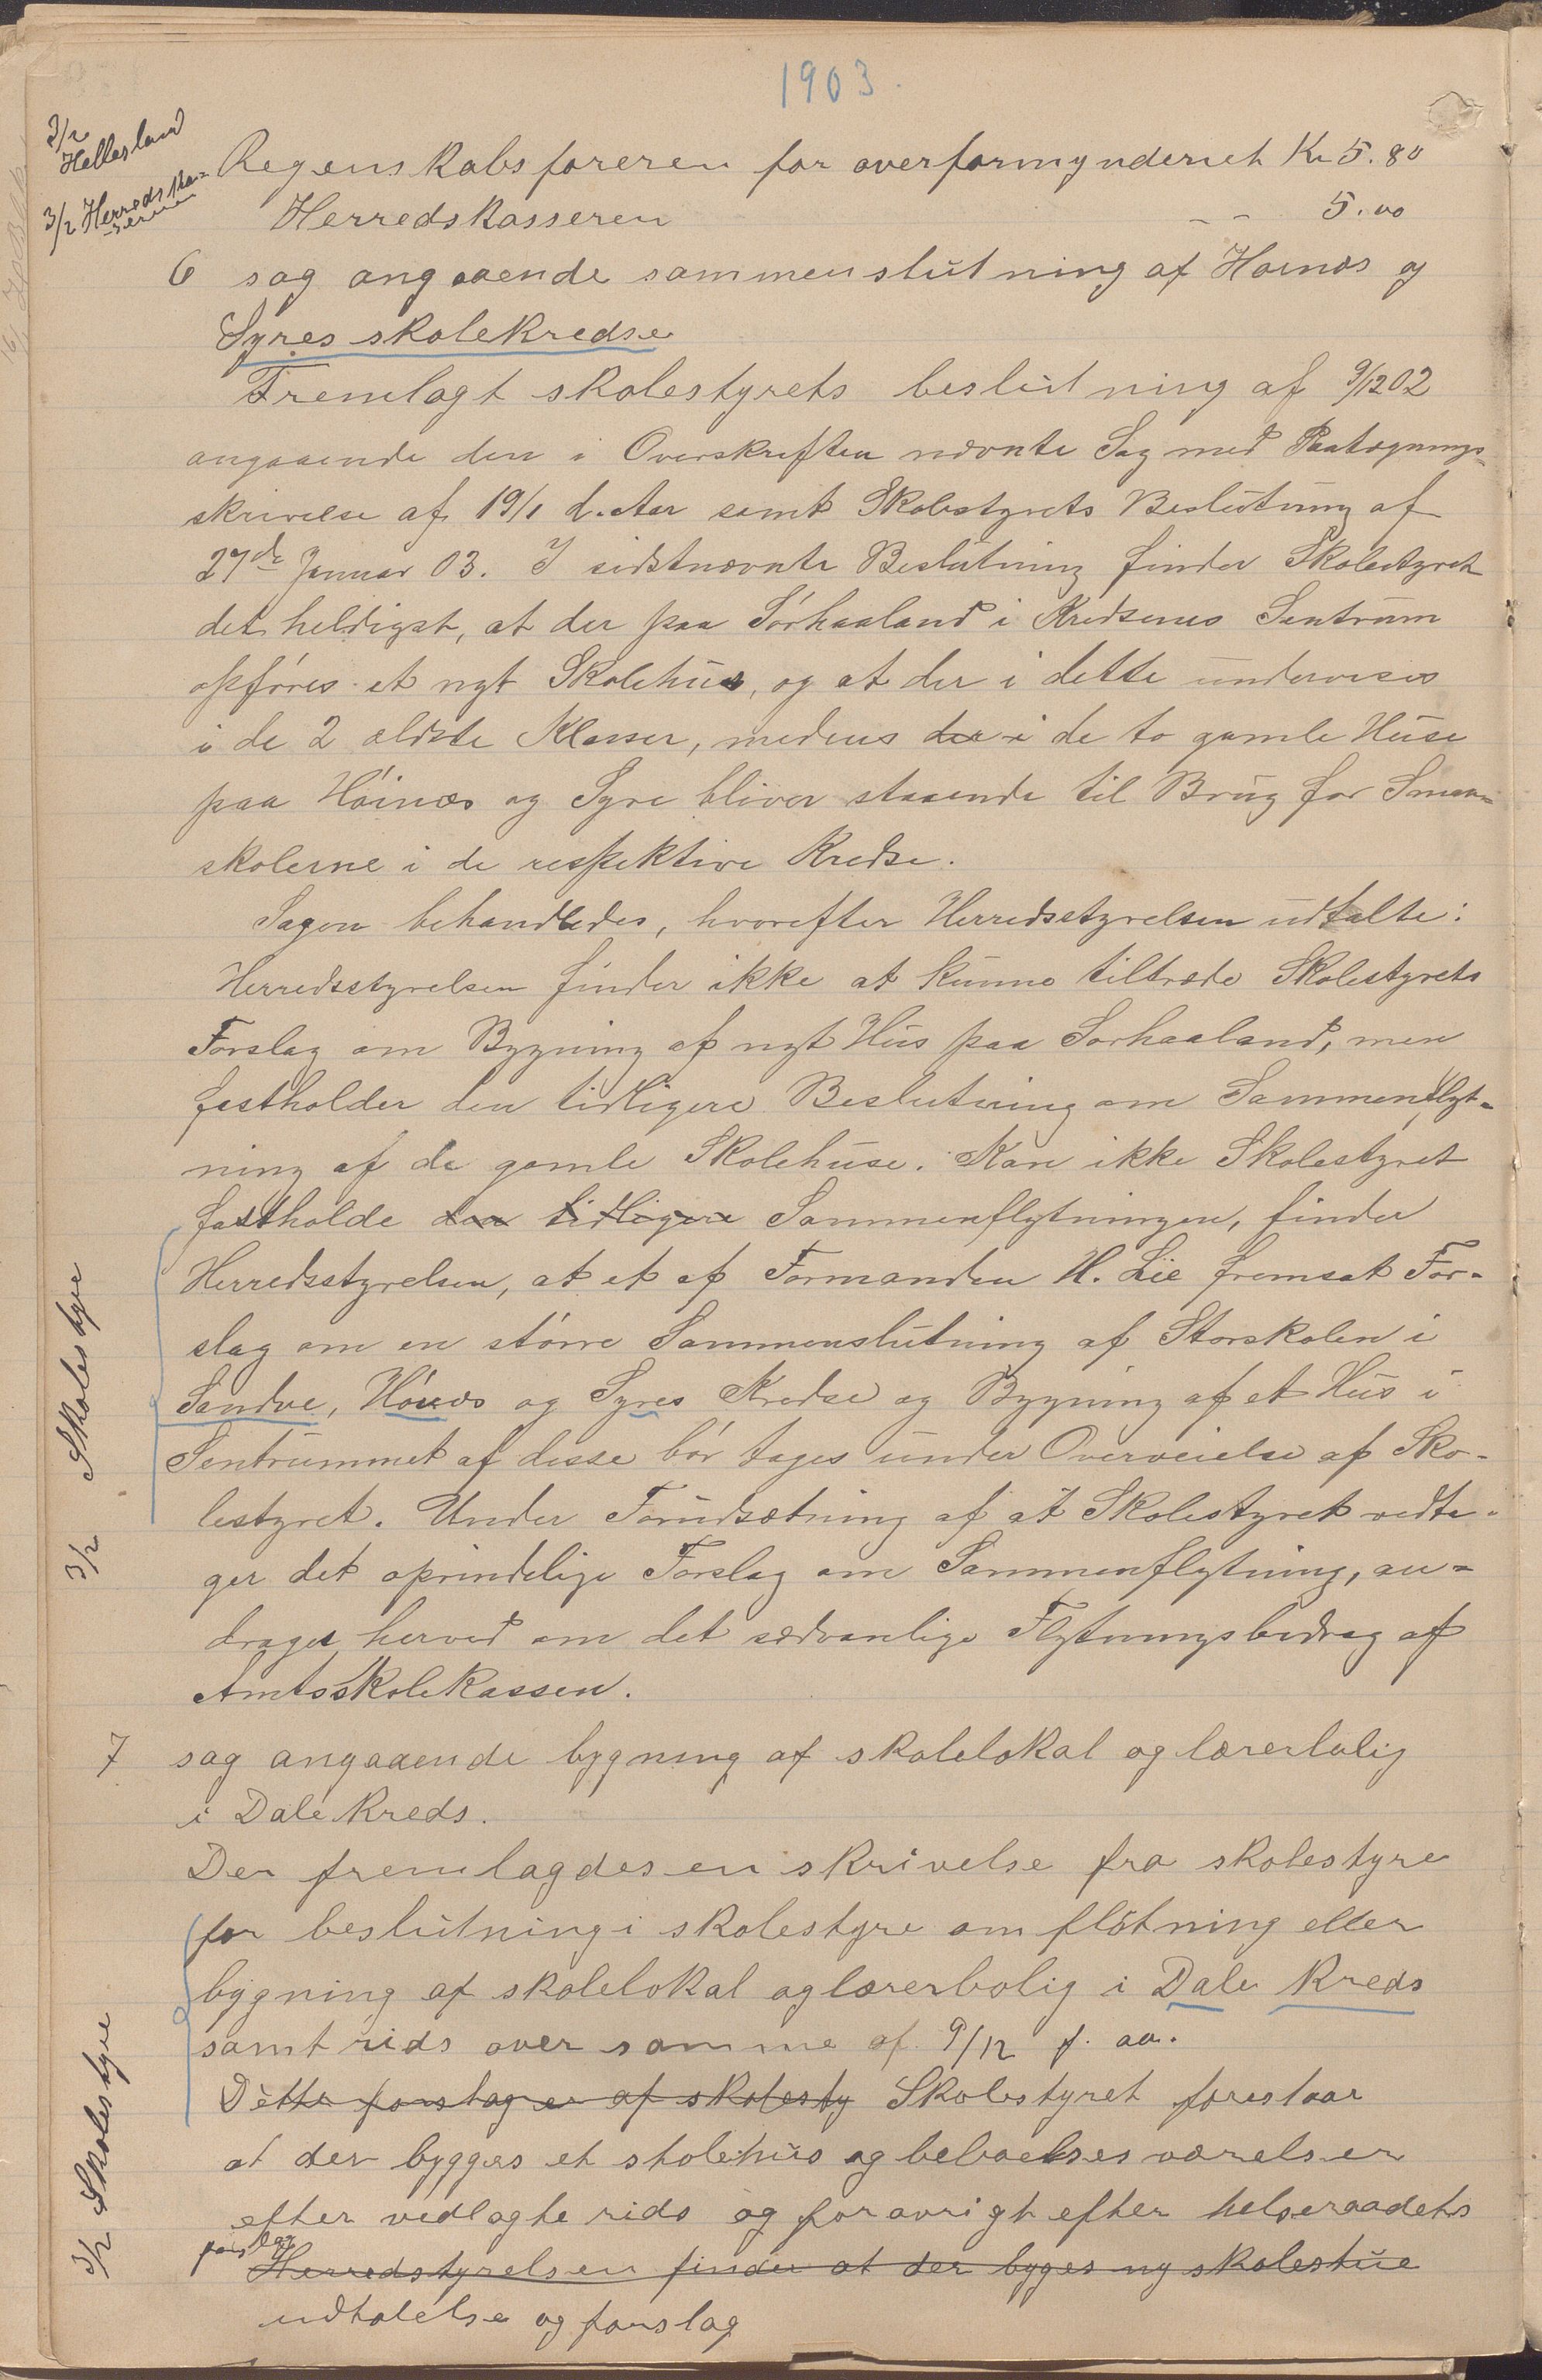 1903.
3/2 Hellesland
Regenskabsføreren for overformynderiet Kr 5.80
3/2 Herredskas-
seren
Herredskasseren - - 5.00
6 sag angaaende sammenslutning af Høinæs og
Syres skolekredse
Fremlagt skolestyrets beslutning af 9/12 02
angaaende den i Overskriften nævnte Sag med Paategnings-
skrivelse af 19/1 d. Aar samt Skolestyrets Beslutning af
27de Januar 03. I sidstnævnte Beslutning finder Skolestyret
det heldigst, at der paa Sørhaaland i Kredsenes Sentrum
opføres et nyt Skolehus, og at der i dette undervises
i de 2 ældste Klasser, medens der i de to gamle Huse
paa Høinæs og Syre bliver staaende til Brug for Smaa-
skolerne i de respektive Kredse.
Sagen behandledes, hvorefter Herredsstyrelsen udtalte:
Herredsstyrelsen finder ikke at kunne tiltræde Skolestyrets
Forslag om Bygning af nyt Hus paa Sørhaaland, men
fastholder den tidligere Beslutning om Sammenflyt-
ning af de gamle Skolehuse. Kan ikke Skolestyret
fastholde den tidligere Sammenflytningen, finder
Herredsstyrelsen, at et af Formanden H. Lie fremsat For-
slag om en større Sammenslutning af Storskolen i
Sandve, Høinæs og Syres Kredse og Bygning af et Hus i
Sentrummet af disse bør tages under Overveielse af Sko-
lestyret. Under Forudsætning af at Skolestyret vedta-
ger det oprindelige Forslag om Sammenflytning, an-
drages herved om det sædvanlige Flytningsbidrag af
Amtsskolekassen.
3/2 Skolestyre
7 sag angaaende bygning af skolelokal og lærerbolig
i Dale Kreds.
Der fremlagdes en skrivelse fra skolestyre
for beslutning i skolestyre om fløtning eller
bygning af skolelokal og lærerbolig i Dale Kreds
samt rids over samme af 9/12 f. aa.
Dette forslag er af skolesty Skolestyret foreslaar
at der bygges et skolehus og beboelsesværelser
efter vedlagte rids og forøvrigt efter helseraadets
forslag
Herredstyrelsen finder at der byges ny skolestue
udtalelse og forslag
3/2 Skolestyre